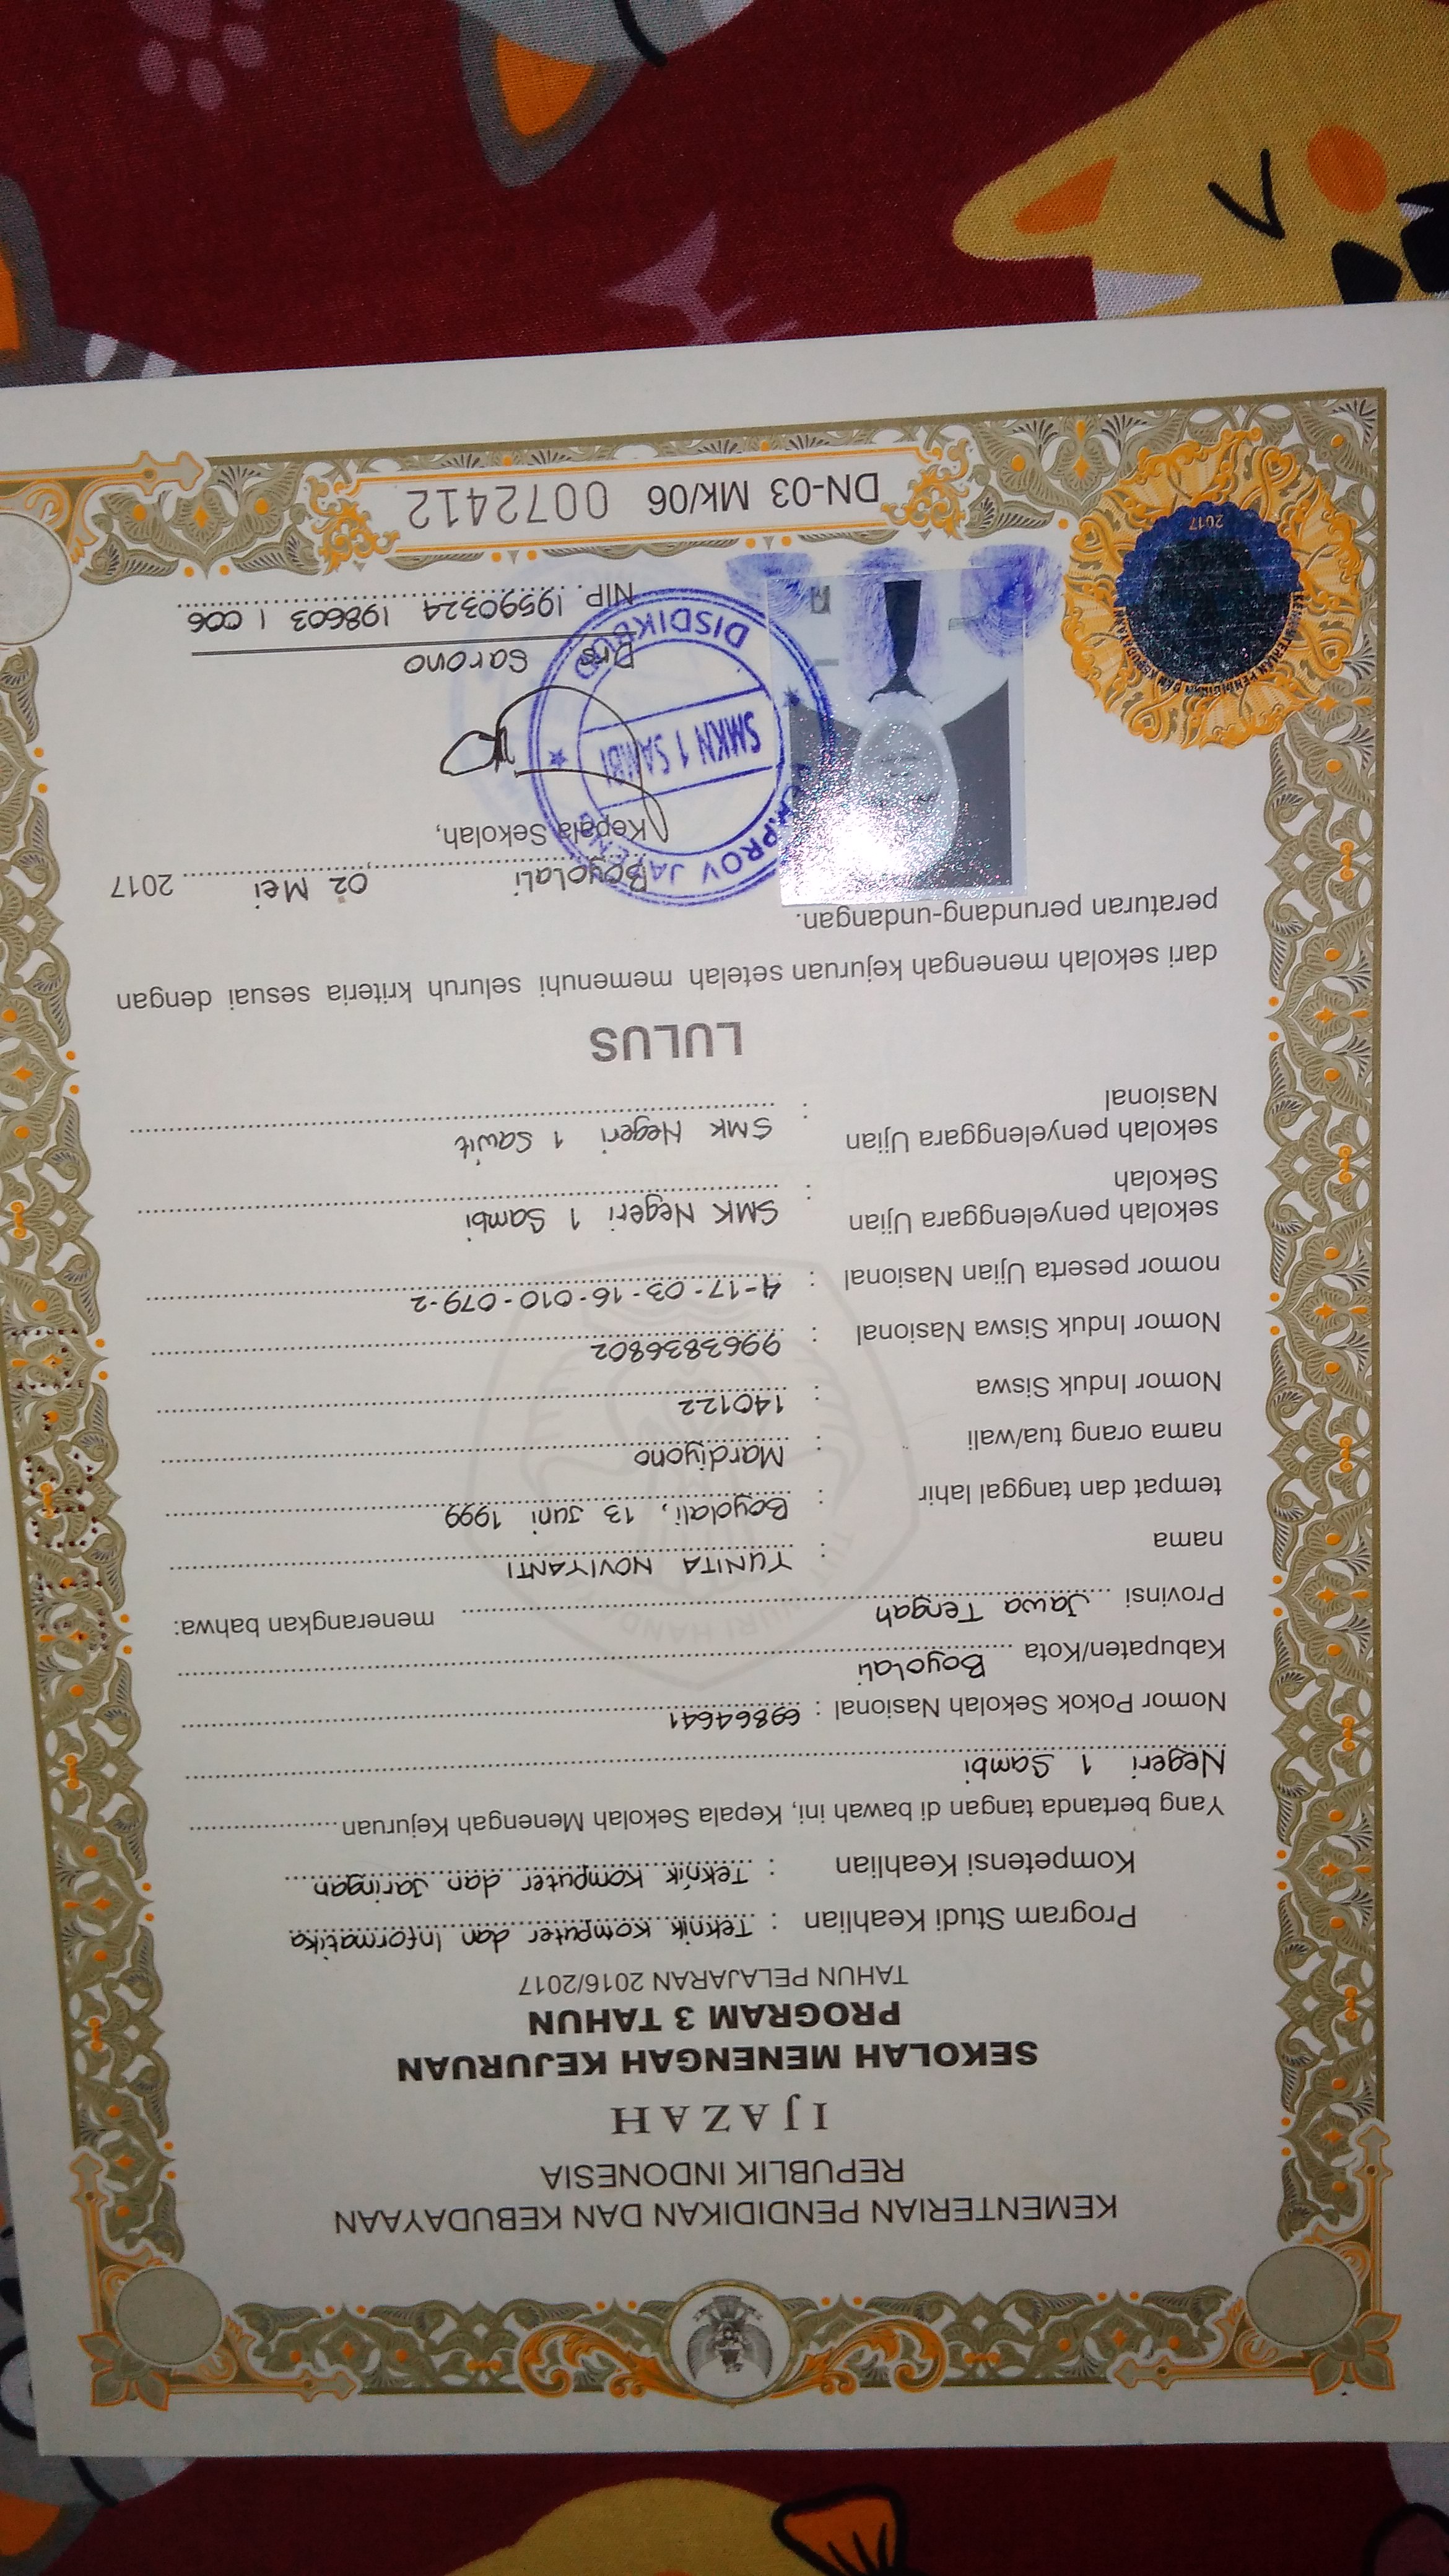 KEMENTERIAN PENDIDIKAN DAN KEBUDAYAAN
REPUBLIK INDONESIA
IJAZAH
SEKOLAH MENENGAH KEJURUAN
PROGRAM 3 TAHUN
TAHUN PELAJARAN 2016/2017
Program Studi Keahlian : Teknik Komputer dan Informatika
Kompetensi Keahlian : Teknik Komputer dan Jaringan
Yang bertanda tangan di bawah ini, Kepala Sekolah Menengah Kejuruan
Negeri 1 Sambi
Nomor Pokok Sekolah Nasional : 69864641
Kabupaten/Kota Boyolali
Provinsi Jawa Tengah menerangkan bahwa:
nama : YUNITA NOVIYANTI
tempat dan tanggal lahir : Boyolali, 13 Juni 1999
nama orang tua/wali : Mardiyono
Nomor Induk Siswa : 140122
Nomor Induk Siswa Nasional : 9963836802
nomor peserta Ujian Nasional : 4-17-03-16-010-079-2
sekolah penyelenggara Ujian
Sekolah : SMK Negeri 1 Sambi
sekolah penyelenggara Ujian
Nasional : SMK Negeri 1 Sawit
LULUS
dari sekolah menengah kejuruan setelah memenuhi seluruh kriteria sesuai dengan
peraturan perundang-undangan.
Boyolali, 02 Mei 2017
Kepala Sekolah,
SMKN 1 SAMBI
Drs Sarono
NIP. 19590324 198603 1 006
KEMENTERIAN PENDIDIKAN DAN KEBUDAYAAN
2017
DN-03 Mk/06 0072412